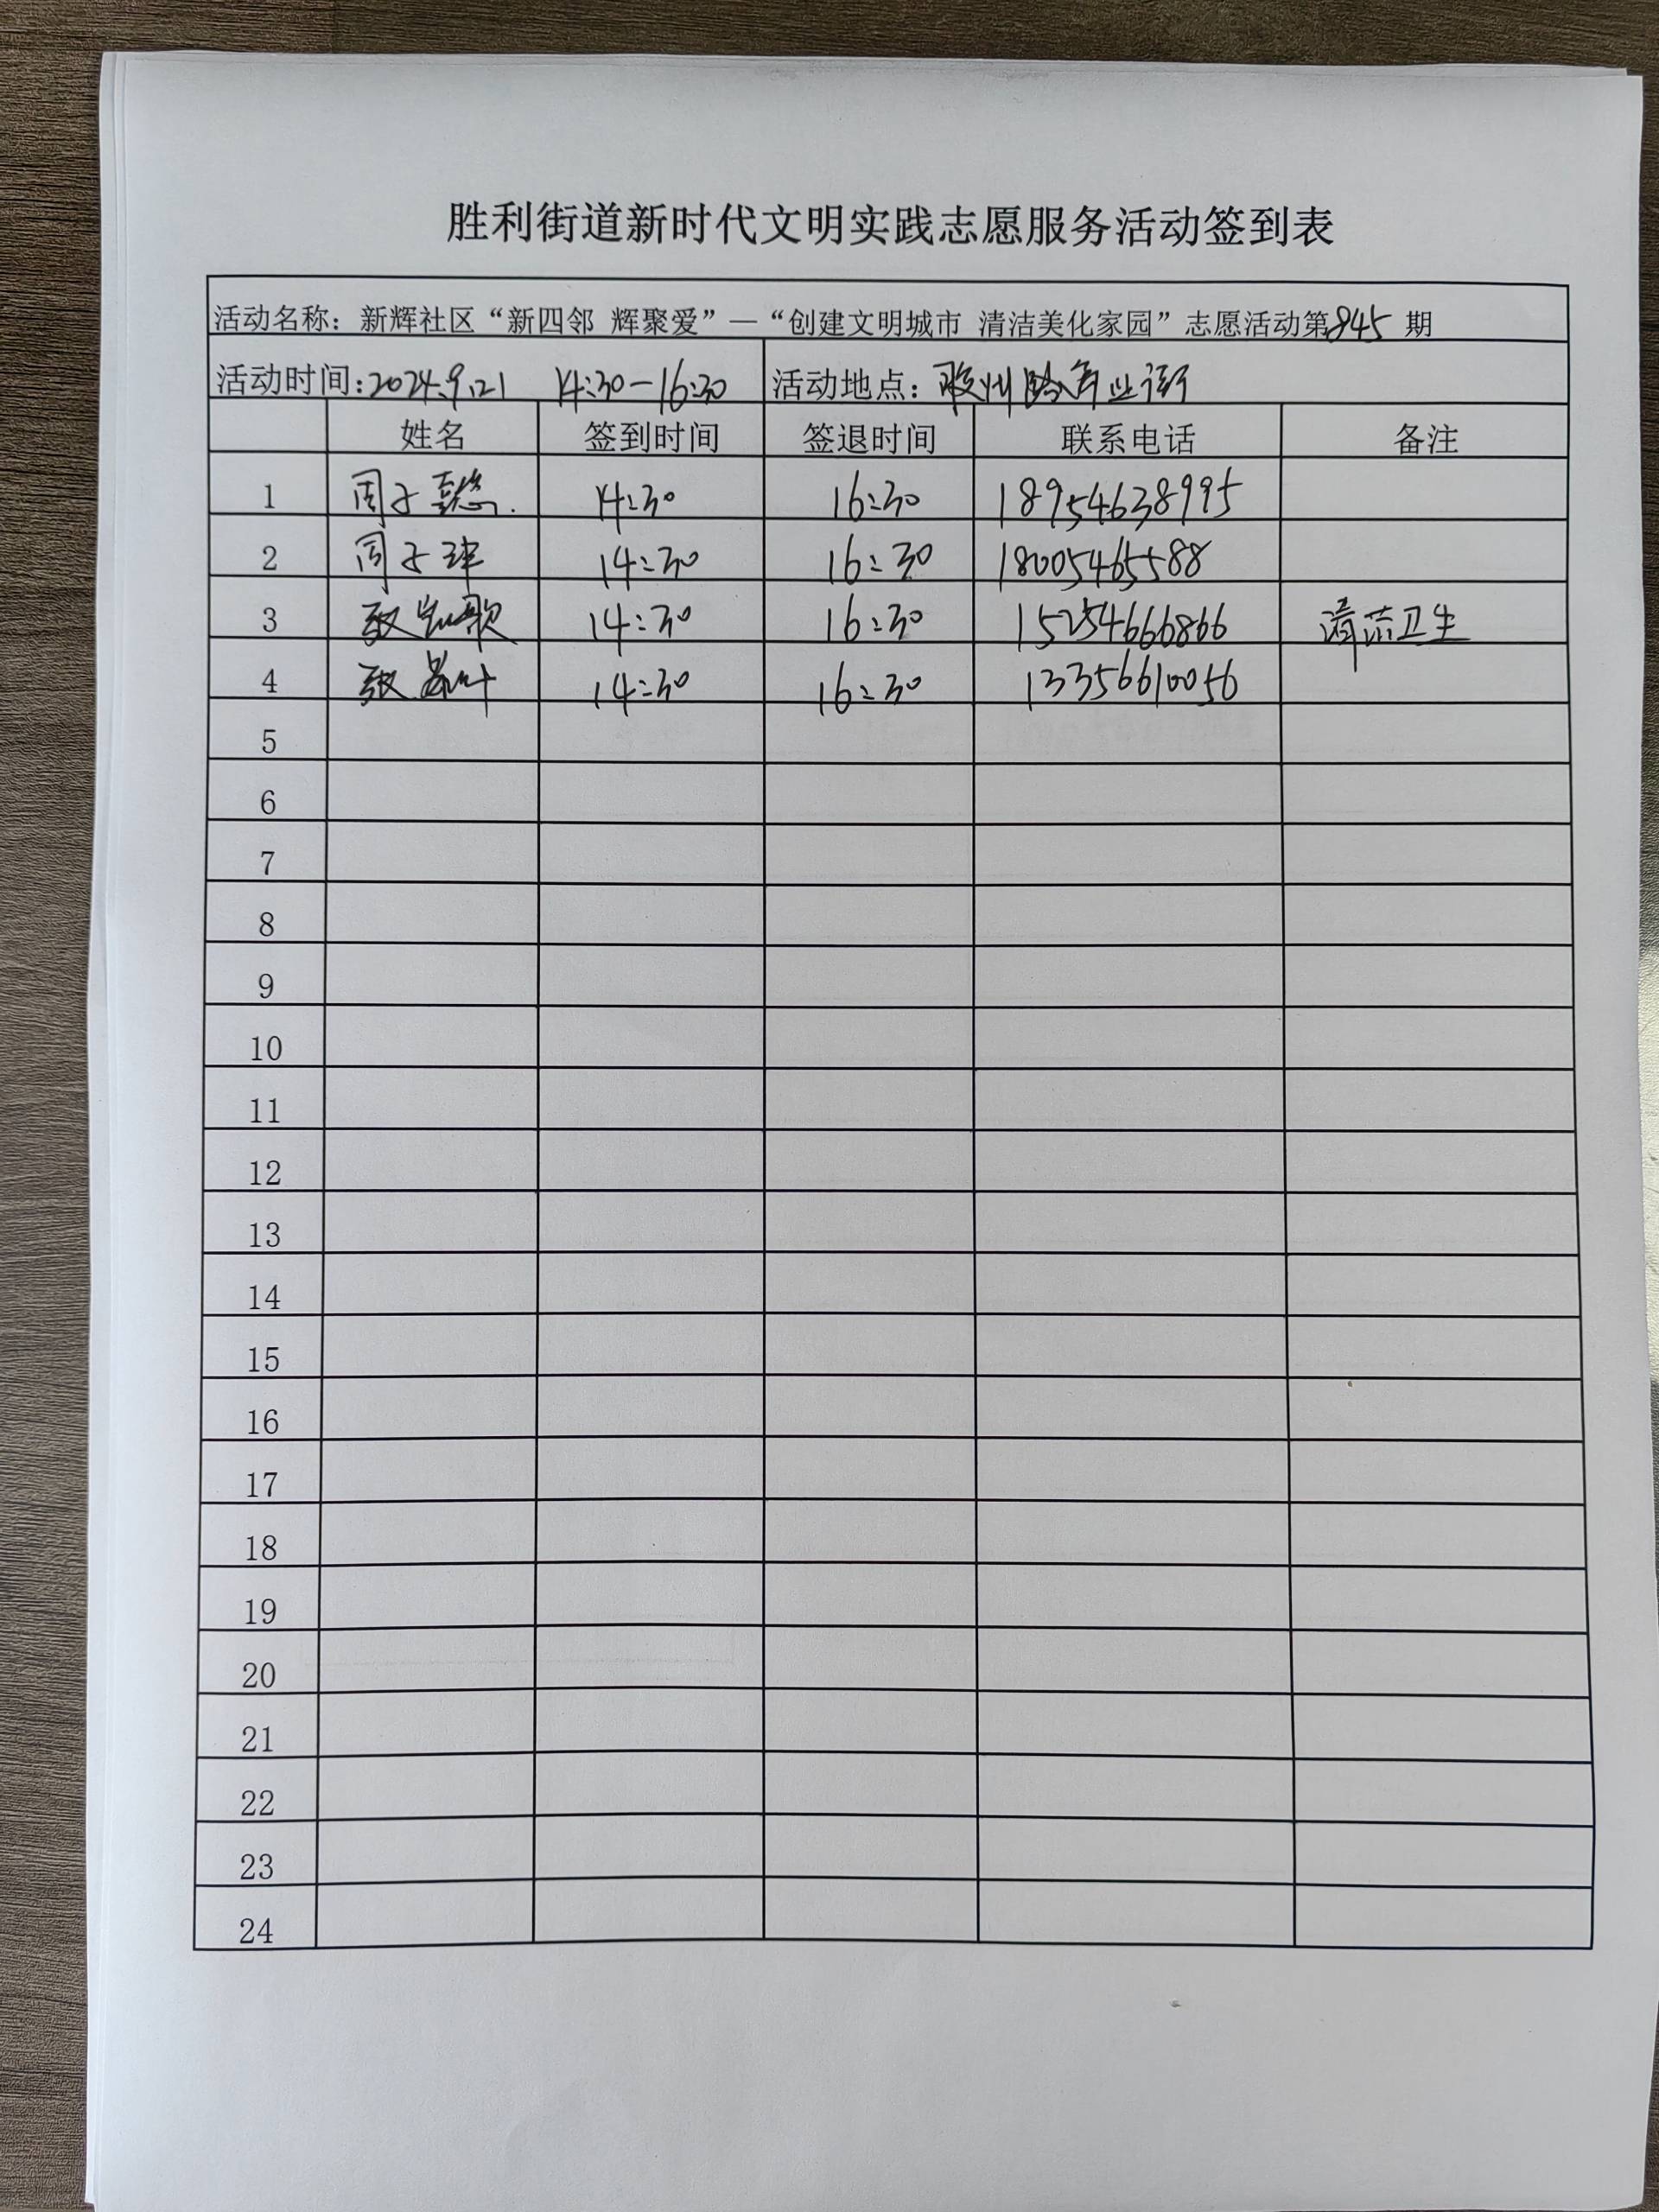 胜利街道新时代文明实践志愿服务活动签到表
活动名称：新辉社区“新四邻 辉聚爱”—“创建文明城市 清洁美化家园”志愿活动第845 期
活动时间：2024.9.21 14:30-16:30 活动地点：胶州路商业街
姓名 签到时间 签退时间 联系电话 备注
1 周子懿 14:30 16:30 18954638995
2 周子 14:30 16:30 18005465588
3 歌 14:30 16:30 15254666866 清洁卫生
4 14:30 16:30 13356610056
5
6
7
8
9
10
11
12
13
14
15
16
17
18
19
20
21
22
23
24